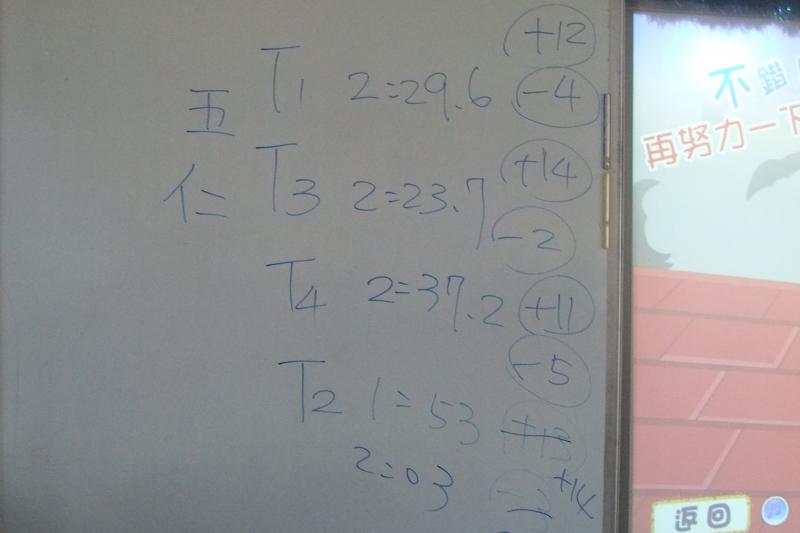 五
仁
T1 2=29.6 +12
-4
T3 2=23.7 +14
-2
T4 2=37.2 +11
-5
T2 1=53
2=03 +14
不錯
再努力一下
返回